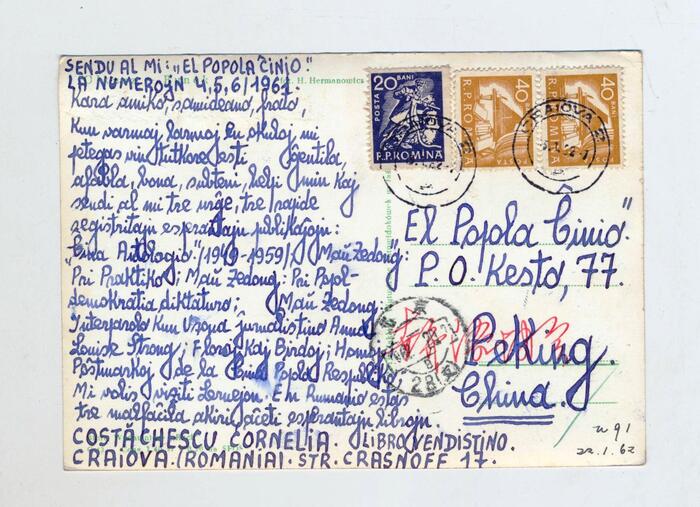 SENDU AL MI: "EL POPOLA ĈINIO"
LA NUMEROJN 4,5,6/1961.
Kara amiko, samideano, frato,
Kun varmaj larmoj en okuloj mi
petegas vin tutkore esti ĝentila,
afabla, bona, subteni, helpi min kaj
sendi al mi tre urĝe, tre rapide
registritajn esperantajn publikaĵojn:
"Ĉina Antologio" (1949-1959); Maŭ Zedong:
"Pri Praktiko; Maŭ Zedong: Pri Popol-
demokratia diktaturo; Maŭ Zedong
Interparolo Kun Usona ĵurnalistino Anna
Louise Strong; Floroj kaj Birdoj;
Poŝtmarkoj de la Ĉina Popola
Mi volis viziti Lernejon. En Rumanio estas
tre malfacila akiri ĉi esperantajn librojn.
COSTĂCHESCU CORNELIA. LIBROVENDISTINO.
CRAIOVA. (ROMANIA). STR. CRASNOFF 17.
H. Hermanowicz
20 BANI
POSTA
R.P.ROMINA
40 BANI
R.P.ROMINA
POSTA
40 BANI
R.P.ROMINA
POSTA
CRAIOVA
"El Popola Ĉinio"
P. O. Kesto, 77.
Peking.
China.
n 91
22.1.62